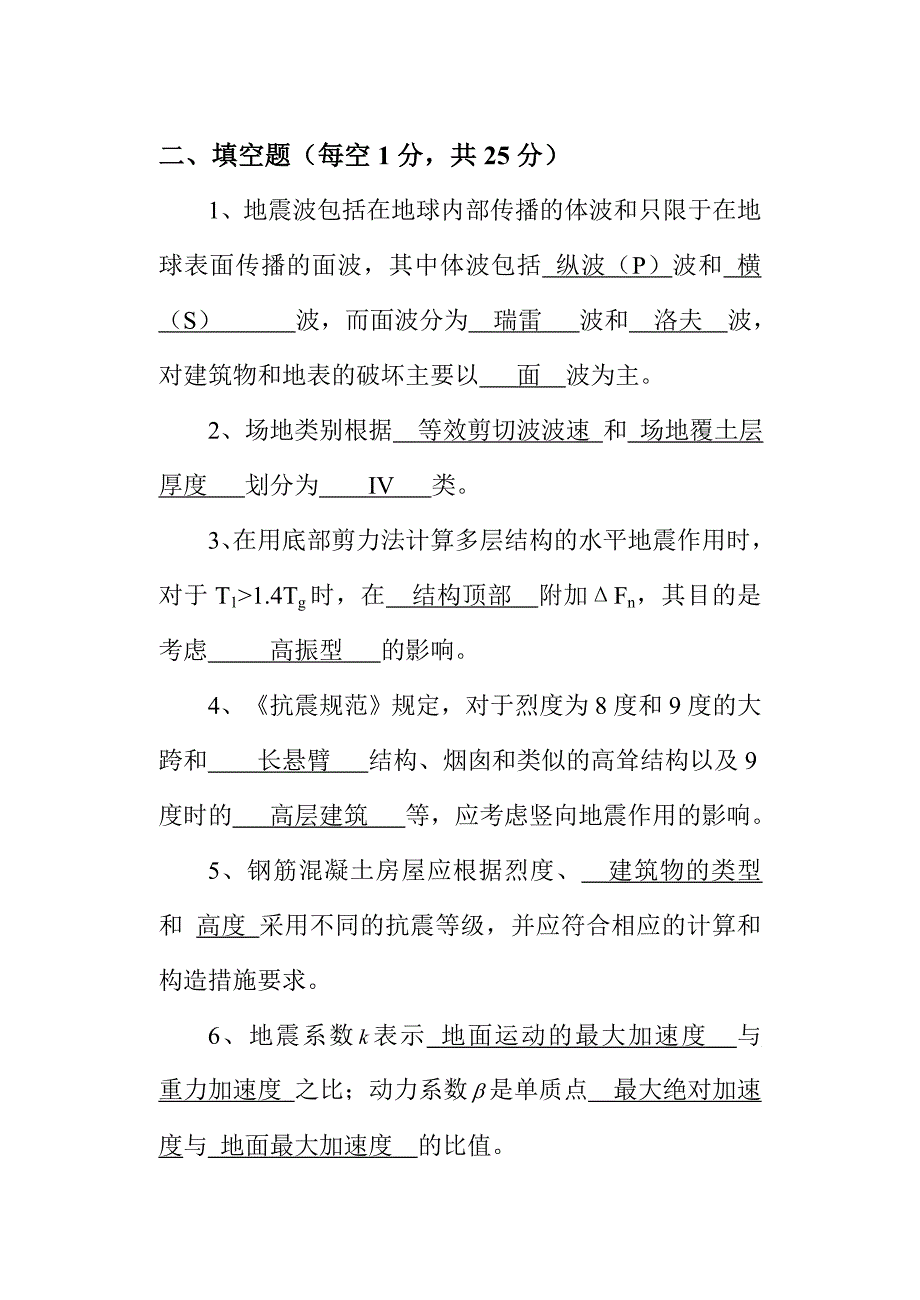 二、填空题（每空 1 分，共 25 分）
1、地震波包括在地球内部传播的体波和只限于在地
球表面传播的面波，其中体波包括 纵波（P）波和 横
（S） 波，而面波分为 瑞雷 波和 洛夫 波，
对建筑物和地表的破坏主要以 面 波为主。
2、场地类别根据 等效剪切波波速 和 场地覆土层
厚度 划分为 IV 类。
3、在用底部剪力法计算多层结构的水平地震作用时，
对于 T1>1.4Tg 时，在 结构顶部 附加 Δ Fn，其目的是
考虑 高振型 的影响。
4、《抗震规范》规定，对于烈度为 8 度和 9 度的大
跨和 长悬臂 结构、烟囱和类似的高耸结构以及 9
度时的 高层建筑 等，应考虑竖向地震作用的影响。
5、钢筋混凝土房屋应根据烈度、 建筑物的类型
和 高度 采用不同的抗震等级，并应符合相应的计算和
构造措施要求。
6、地震系数 k 表示 地面运动的最大加速度 与
重力加速度 之比；动力系数 β 是单质点 最大绝对加速
度与 地面最大加速度 的比值。